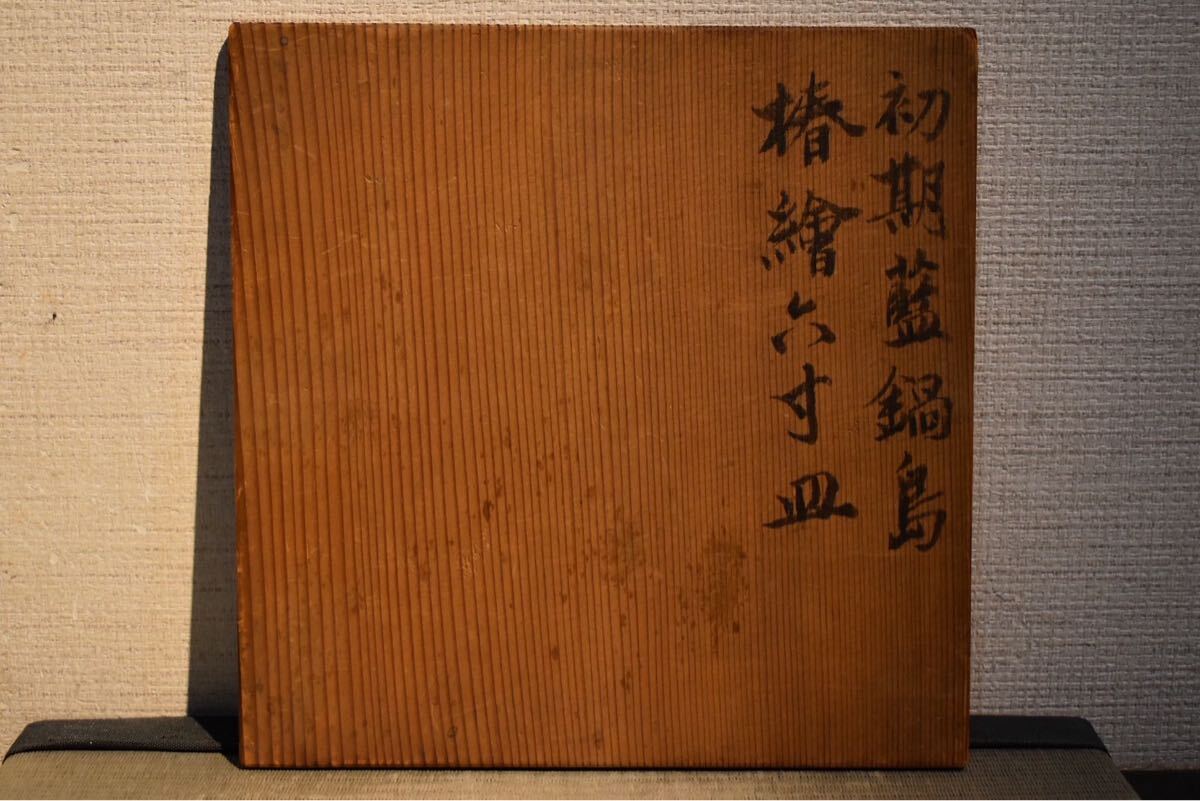 初期藍鍋島
椿繪六寸皿